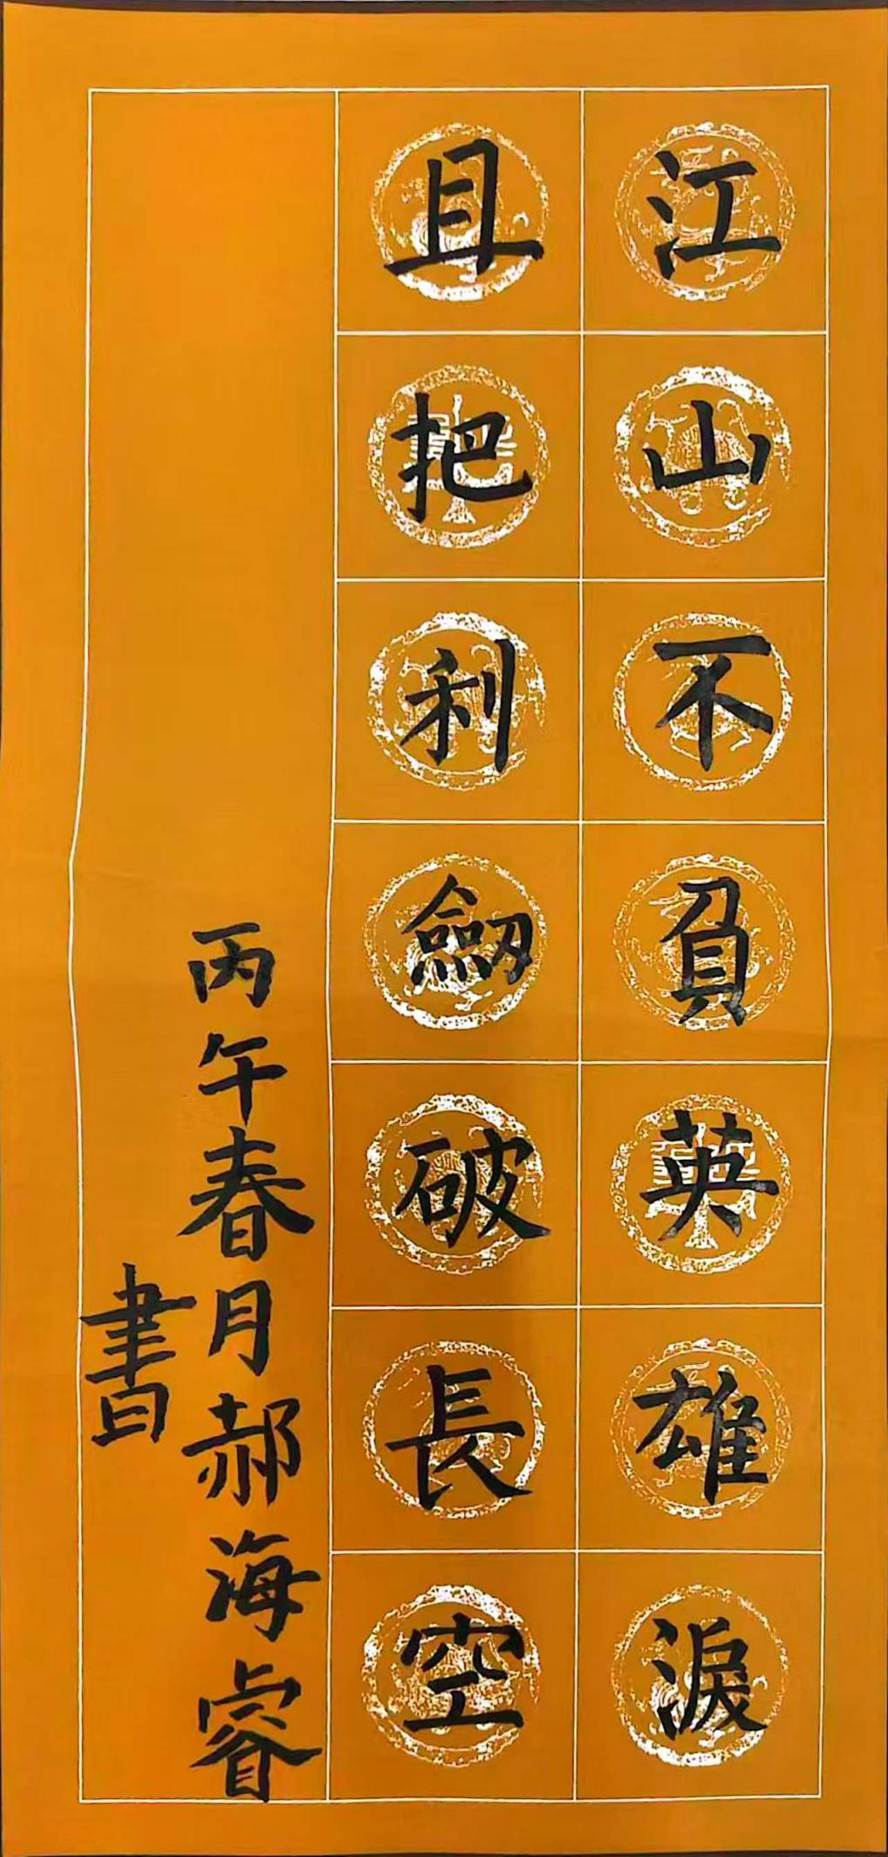 江山不負英雄淚
且把利劔破長空
丙午春月郝海睿
書